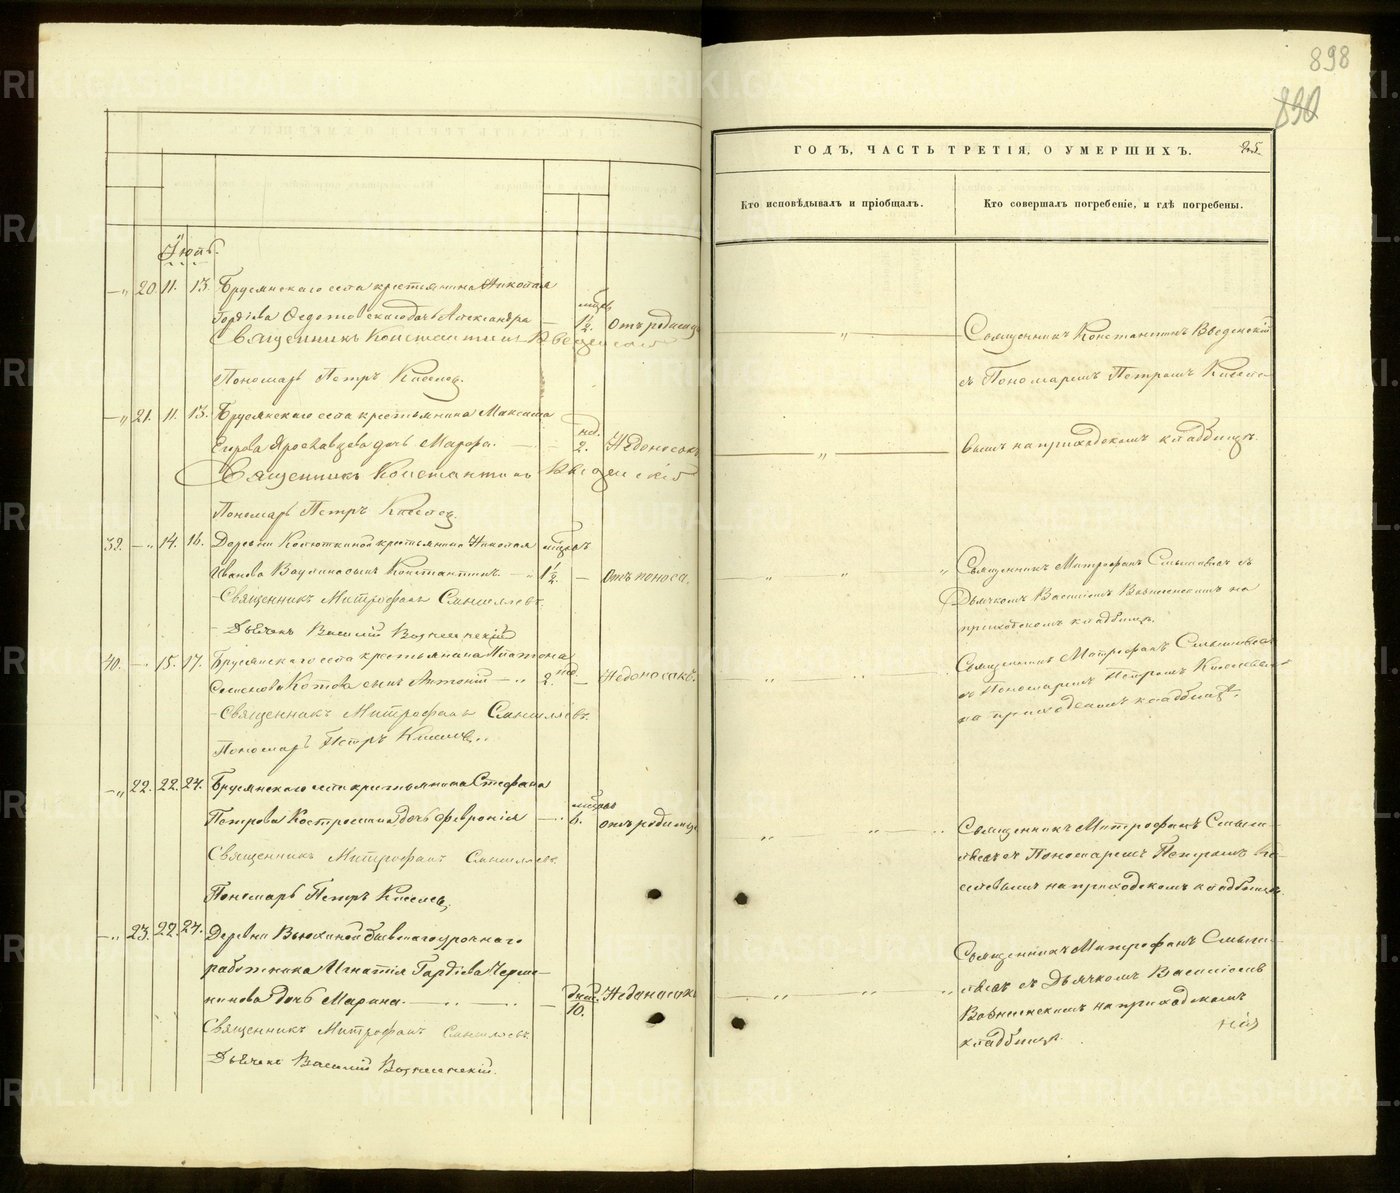 898
890
ГОДЪ, ЧАСТЬ ТРЕТІЯ, О УМЕРШИХЪ.
25.
Кто исповѣдывалъ и пріобщалъ.
Кто совершалъ погребеніе, и гдѣ погребены.
Іюль.
20. 11. 13. Брусянскаго села крестьянина Николая
Гордѣева Ѳедотовскаго дочь Александра
мѣсц. 1½. Отъ родимца
Священникъ Константинъ Введенскій
Пономарь Петръ Киселев.
Священникъ Константинъ Введенскій
съ Пономаремъ Петромъ Кисле-
вымъ на приходскомъ кладбищѣ.
21. 11. 13. Брусянскаго села крестьянина Максима
Егорова Ярославцева дочь Марѳа.
нед. 2. Недоносокъ
Священникъ Константинъ Введенскій
Пономарь Петръ Киселев.
39. 14. 16. Деревни Колюткиной крестьянина Николая
Иванова Ваулина сынъ Константинъ.
мѣсяцъ 1½ Отъ поноса.
Священникъ Митрофанъ Смышляевъ.
Дьячекъ Василій Вознесенскій
Священникъ Митрофанъ Смышляевъ съ
Дьячкомъ Василіемъ Вознесенскимъ на
приходскомъ кладбищѣ.
40. 15. 17. Брусянскаго села крестьянина Платона
Семенова Котова сынъ Антоній
2. нед. Недоносокъ.
Священникъ Митрофанъ Смышляевъ.
Пономарь Петръ Киселев.
Священникъ Митрофанъ Смышляевъ
съ Пономаремъ Петромъ Киселевымъ
на приходскомъ кладбищѣ.
22. 22. 24. Брусянскаго села крестьянина Стефана
Петрова Костромина дочь Февронія
мѣсцов 6. отъ родимца
Священникъ Митрофанъ Смышляевъ.
Пономарь Петръ Киселев.
Священникъ Митрофанъ Смыш-
ляевъ съ Пономаремъ Петромъ Ки-
селевымъ на приходскомъ кладбищѣ.
23. 22. 24. Деревни Вьюхиной бывшаго урочнаго
работника Игнатія Гордѣева Черме-
нинова дочь Марина.
дней. 10. Недоносокъ
Священникъ Митрофанъ Смышляевъ.
Дьячекъ Василій Вознесенскій.
Священникъ Митрофанъ Смыш-
ляевъ съ Дьячкомъ Василіемъ
Вознесенскимъ на приходскомъ
кладбищѣ.
METRIKI.GASO-URAL.RU